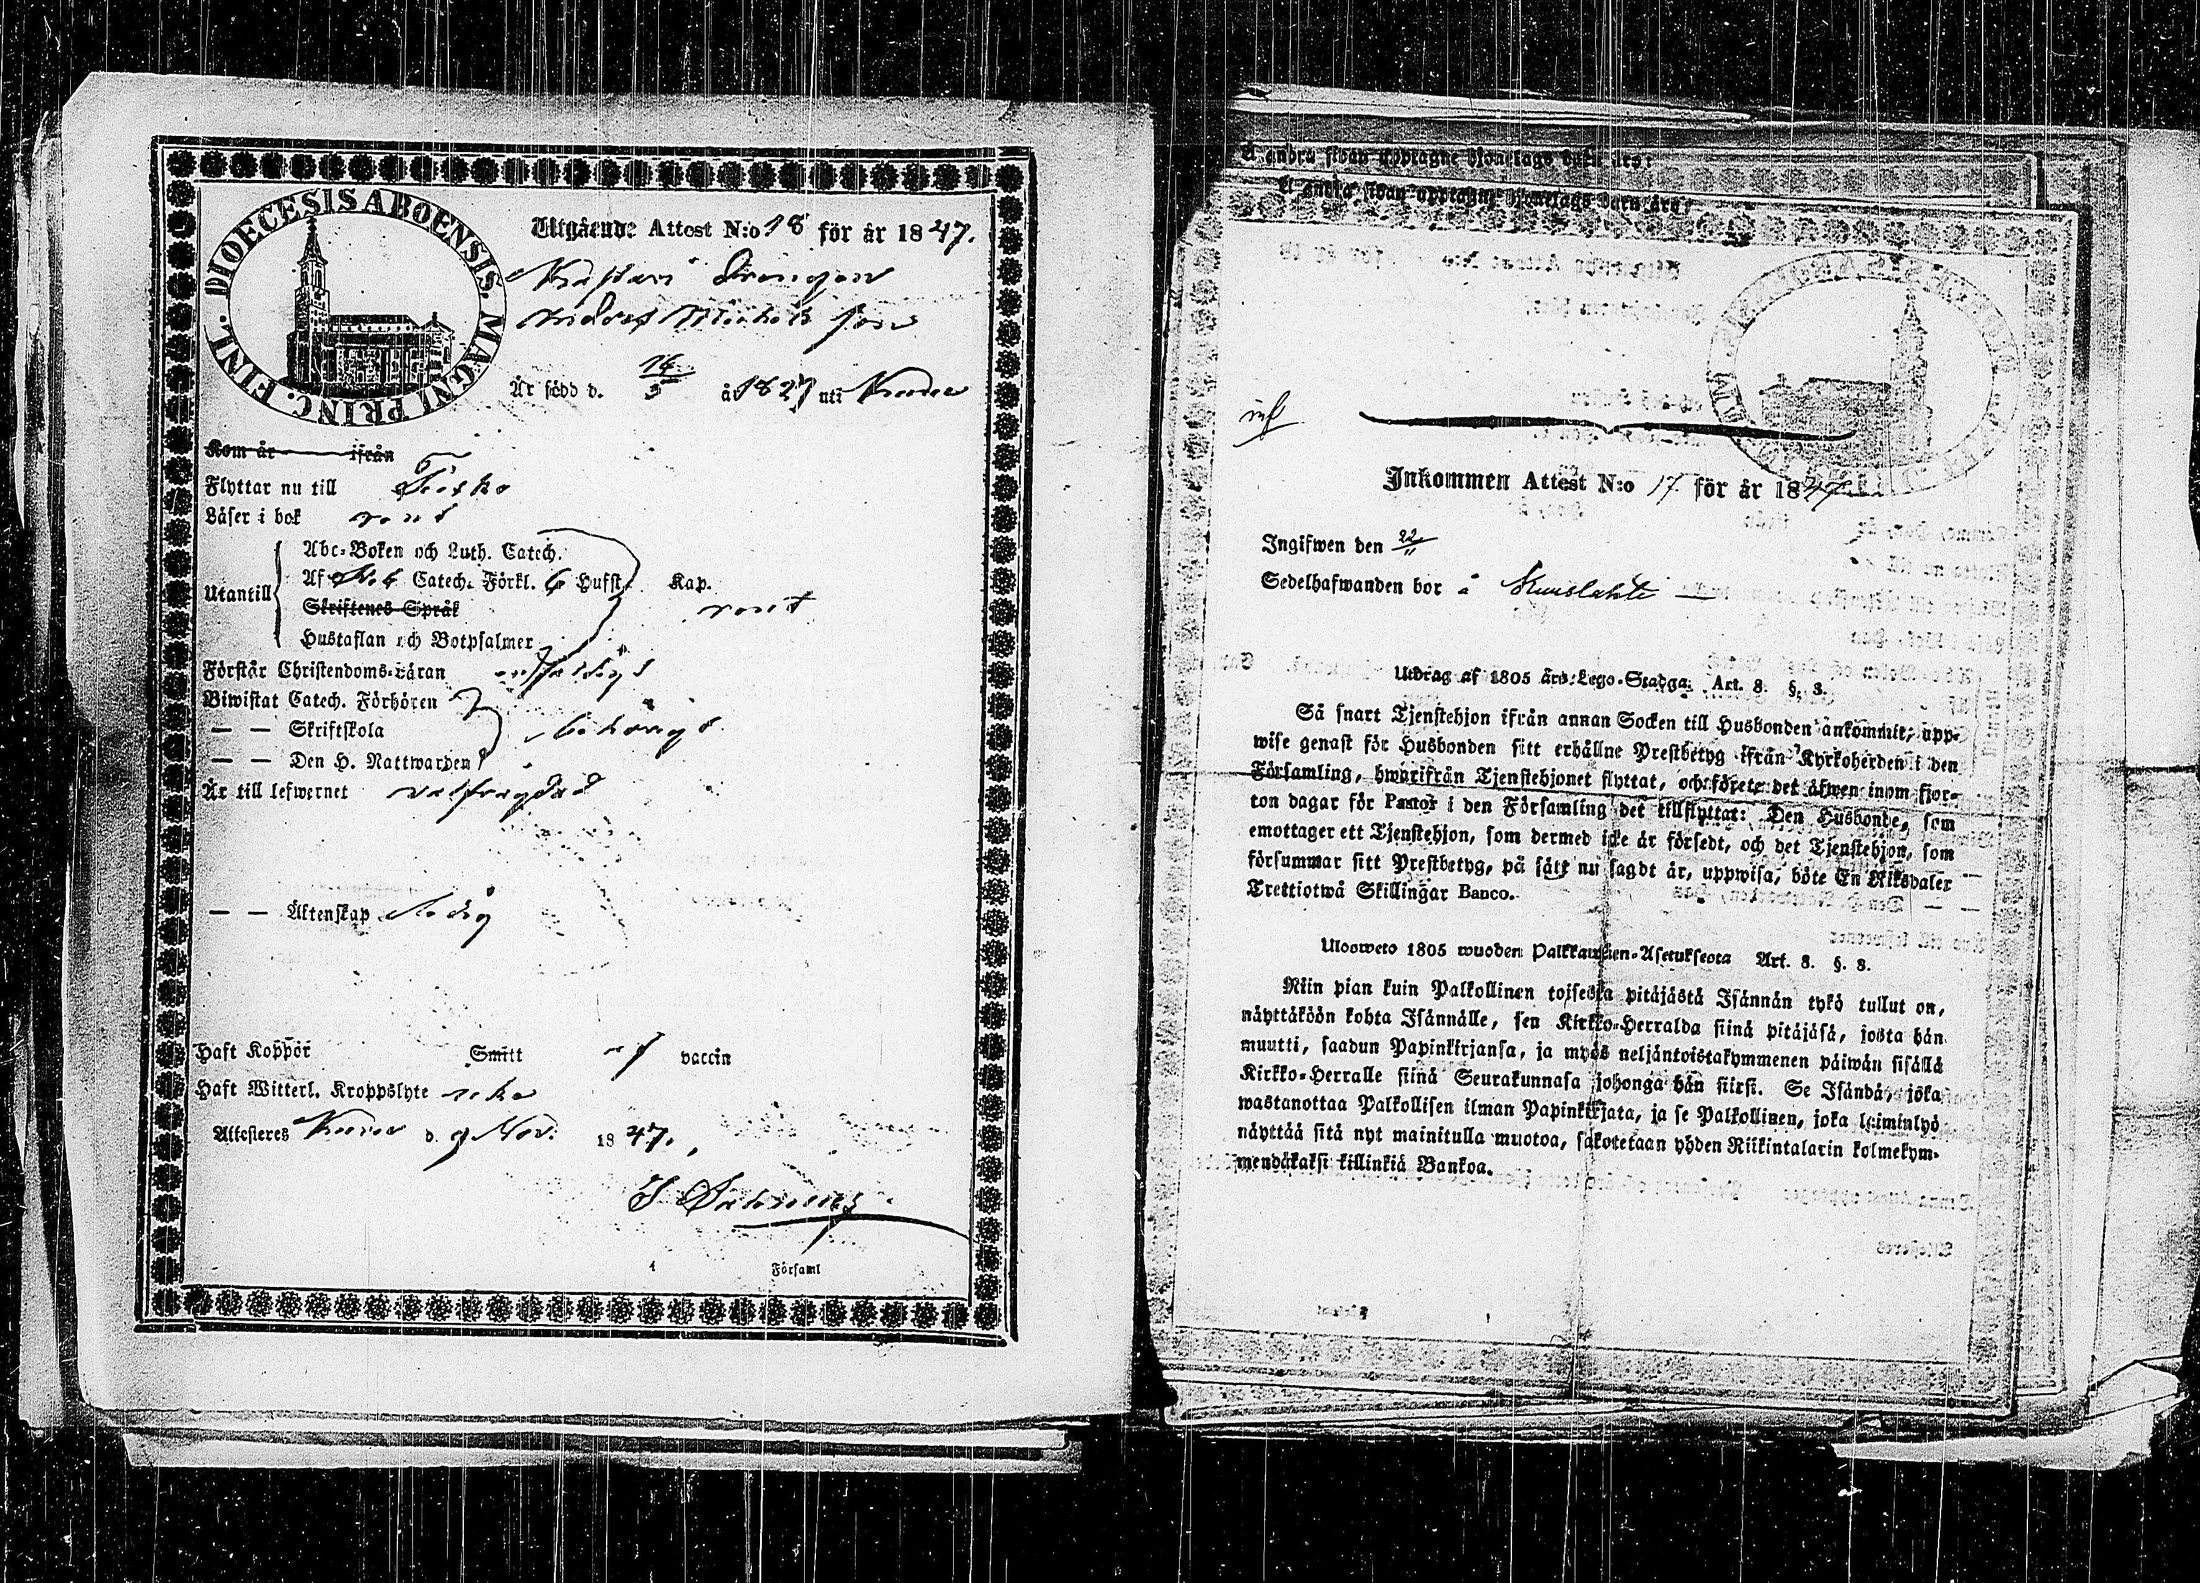 DIOECESIS ABOENSIS. MAGNI PRINC. FINL.
Utgående Attest N:o 18 för år 1847.
Drengen
Michels son
Är född d. 14/3 å 1827 uti
Kom år ifrån
Flyttar nu till Kisko
Läser i bok rent
Utantill
Abc-Boken och Luth. Catech.
Af Catech. Förkl. 6 Hufst. Kap.
Skriftenes Språk
rent
Hustaflan och Botpsalmer
Förstår Christendoms-Läran
Biwistat Catech. Förhören
— — Skriftskola behörigt
— — Den H. Nattwarden
Är till lefwernet välfrägdad
— — Äktenskap ledig
Haft Koppor Smitt vaccin
Haft Witterl. Kroppslyte icke
Attesteres d. 9 Nov. 1847.
Församl
å andra sidan upptagne Hjonelags barn äro:
å andra sidan upptagne Hjonelags barn äro:
Inkommen Attest N:o 17. för år 1847
Ingifwen den 22/11
Sedelhafwanden bor å
Utdrag af 1805 års Lego-Stadga. Art. 8. §. 3.
Så snart Tjenstehjon ifrån annan Socken till Husbonden ankommit, upp-
wise genast för Husbonden sitt erhållne Prestbetyg ifrån Kyrkoherden i den
Församling, hwarifrån Tjenstehjonet flyttat, och förete det äfwen inom fjor-
ton dagar för Pastor i den Församling det tillflyttat: Den Husbonde, som
emottager ett Tjenstehjon, som dermed icke är försedt, och det Tjenstehjon, som
försummar sitt Prestbetyg, på sätt nu sagdt är, uppwisa, böte En Riksdaler
Trettiotwå Skillingar Banco.
Ulosweto 1805 wuoden Palkkawäen-Asetuksesta Art. 8. §. 3.
Niin pian kuin Palkollinen toisesta pitäjästä Isännän tykö tullut on,
näyttäköön kohta Isännälle, sen Kirkko-Herralda siinä pitäjäsä, josta hän
muutti, saadun Papinkirjansa, ja myös neljäntoistakymmenen päiwän sisällä
Kirkko-Herralle siinä Seurakunnasa johonga hän siirsi. Se Isändä, joka
wastanottaa Palkollisen ilman Papinkirjata, ja se Palkollinen, joka laiminlyö
näyttää sitä nyt mainitulla muotoa, sakotetaan yhden Riikintalarin kolmekym-
mendäkaksi killinkiä Bankoa.